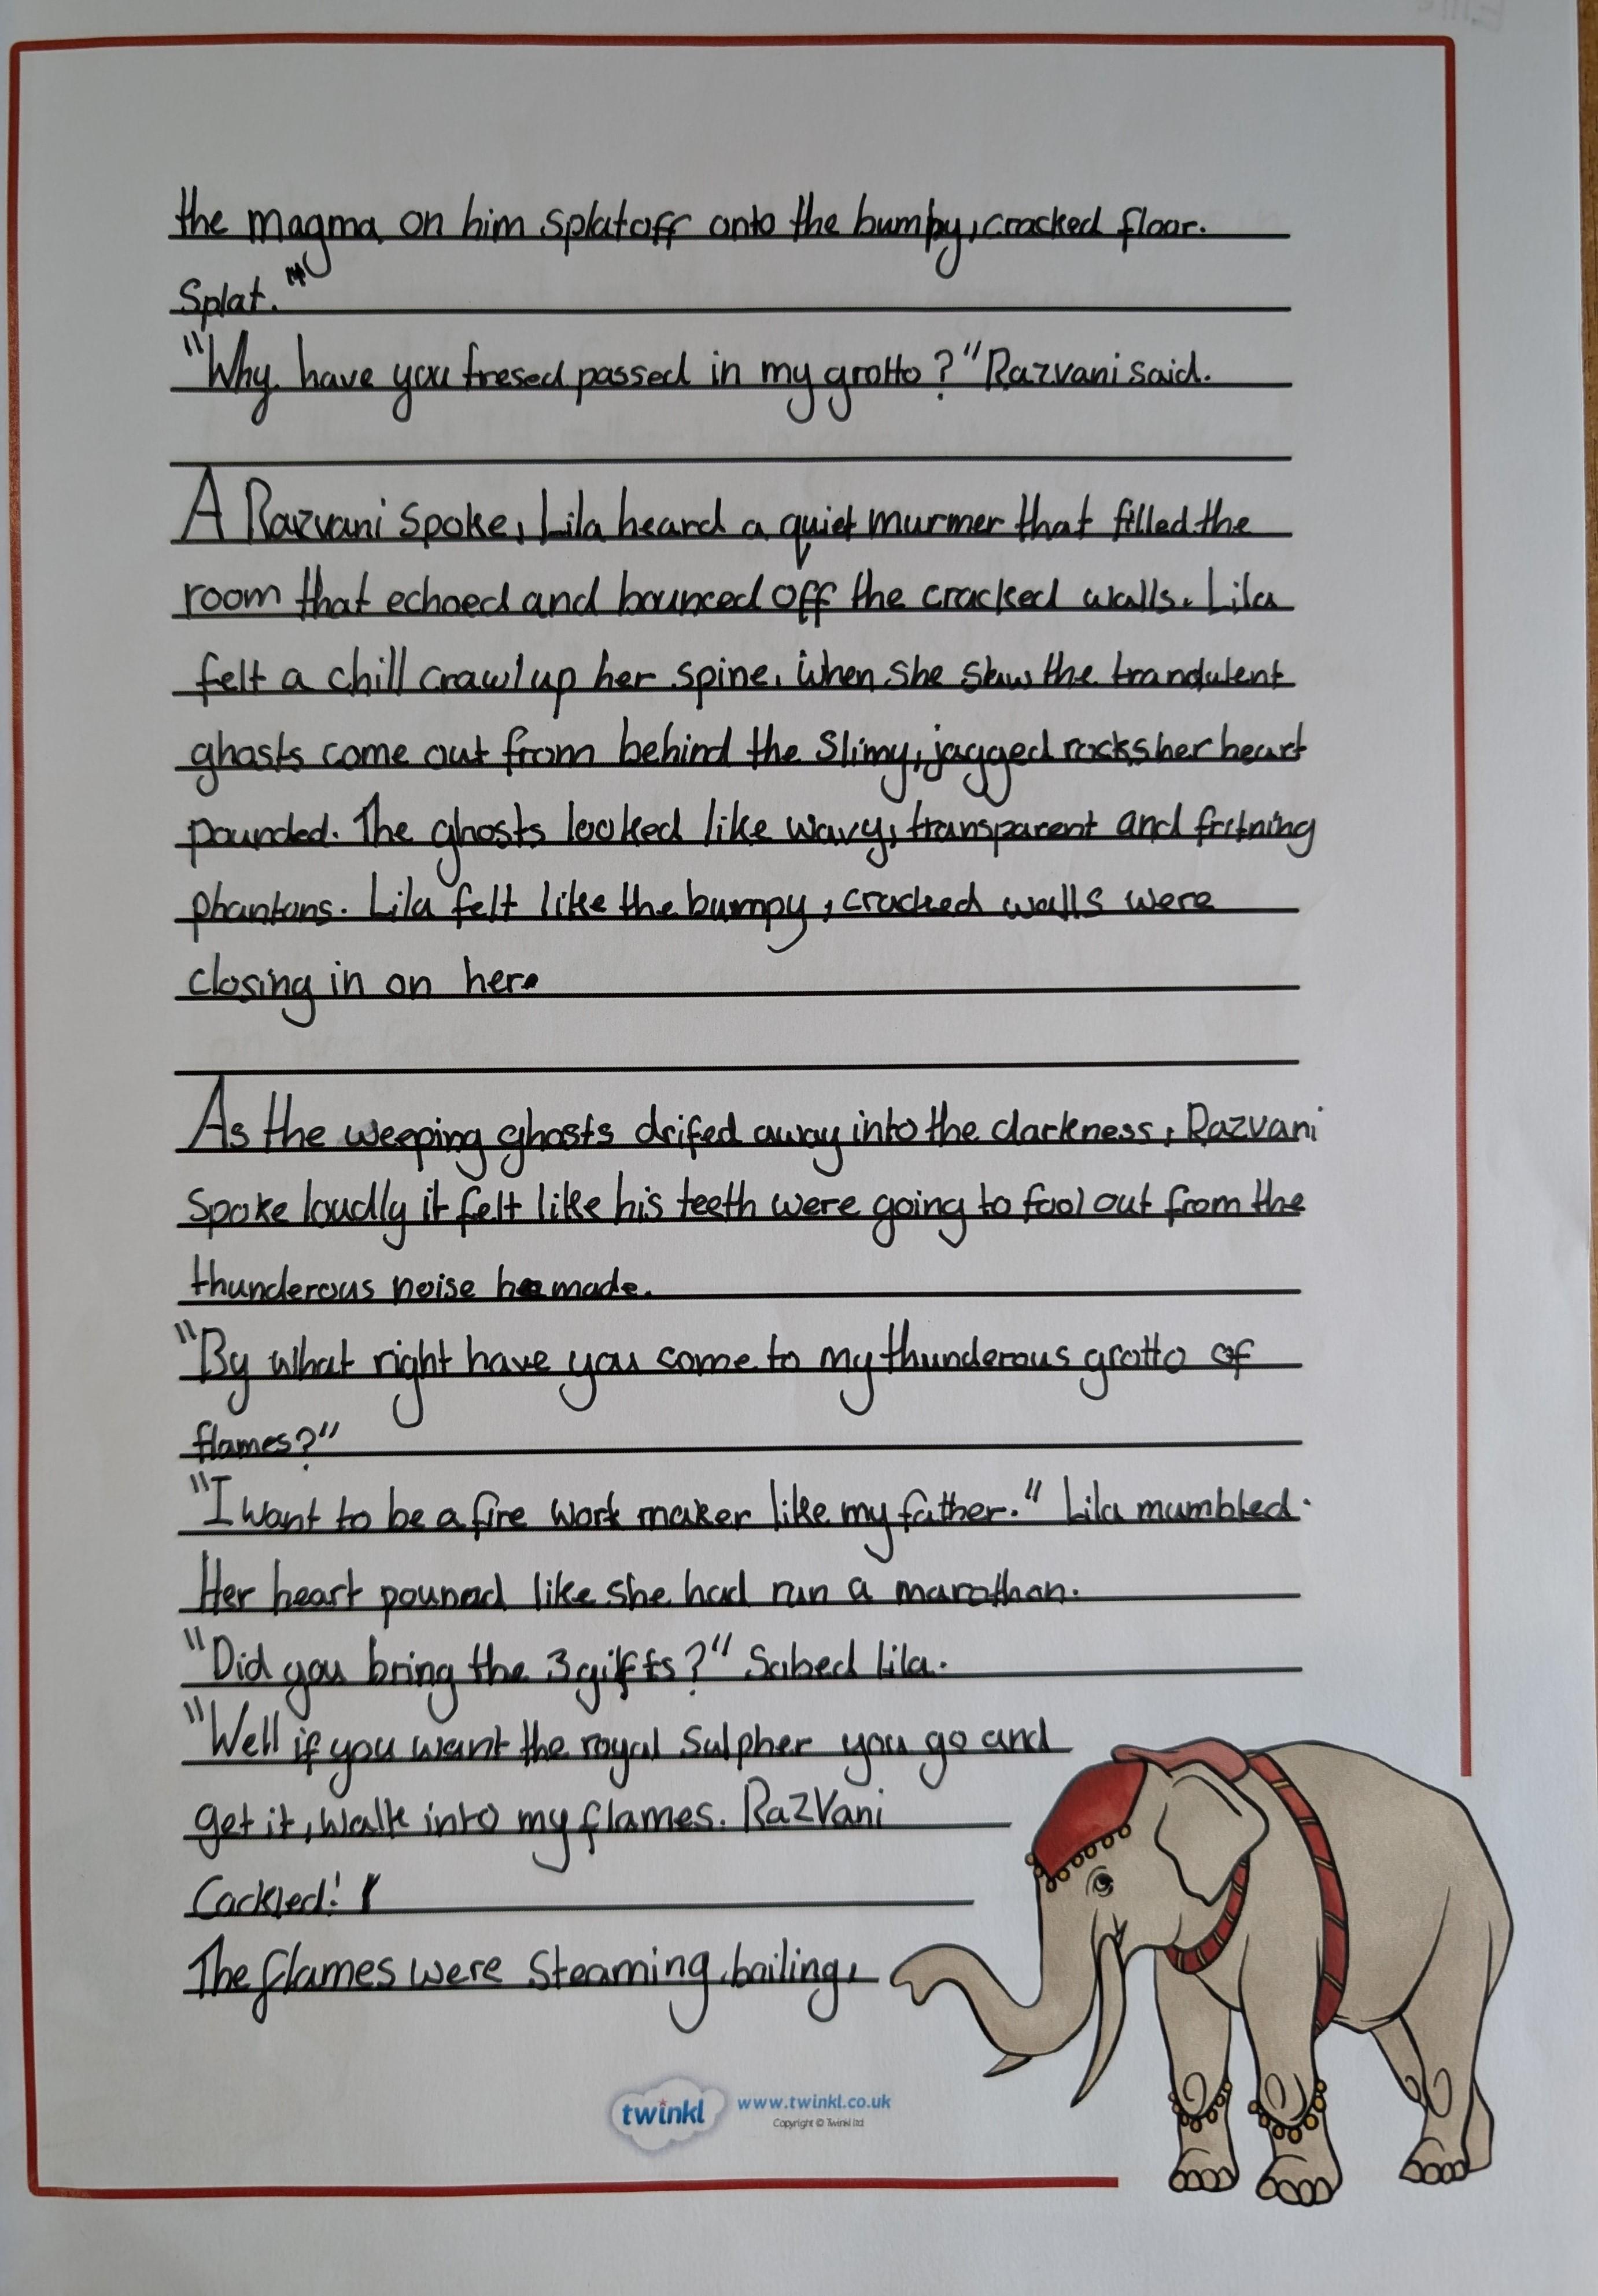 the magma on him splat off onto the bumpy, cracked floor.
Splat."
"Why have you tresed passed in my grotto?" Razvani said.
A Razvani spoke, Lila heard a quiet murmer that filled the
room that echoed and bounced off the cracked walls. Lila
felt a chill crawl up her spine, when she saw the trandulent
ghosts come out from behind the slimy, jagged rocks her heart
pounded. The ghosts looked like wavy, transparent and fritning
phantons. Lila felt like the bumpy, cracked walls were
closing in on her.
As the weeping ghosts drifed away into the darkness, Razvani
spoke loudly it felt like his teeth were going to fool out from the
thunderous noise he made.
"By what right have you come to my thunderous grotto of
flames?"
"I want to be a fire work maker like my father." Lila mumbled.
Her heart pounad like she had run a marathan.
"Did you bring the 3 gifts?" Sabed lila.
"Well if you want the royal sulpher you go and
get it, walk into my flames. RazVani
Cackled!
The flames were steaming, boiling,
twinkl www.twinkl.co.uk
Copyright © Twinkl ltd